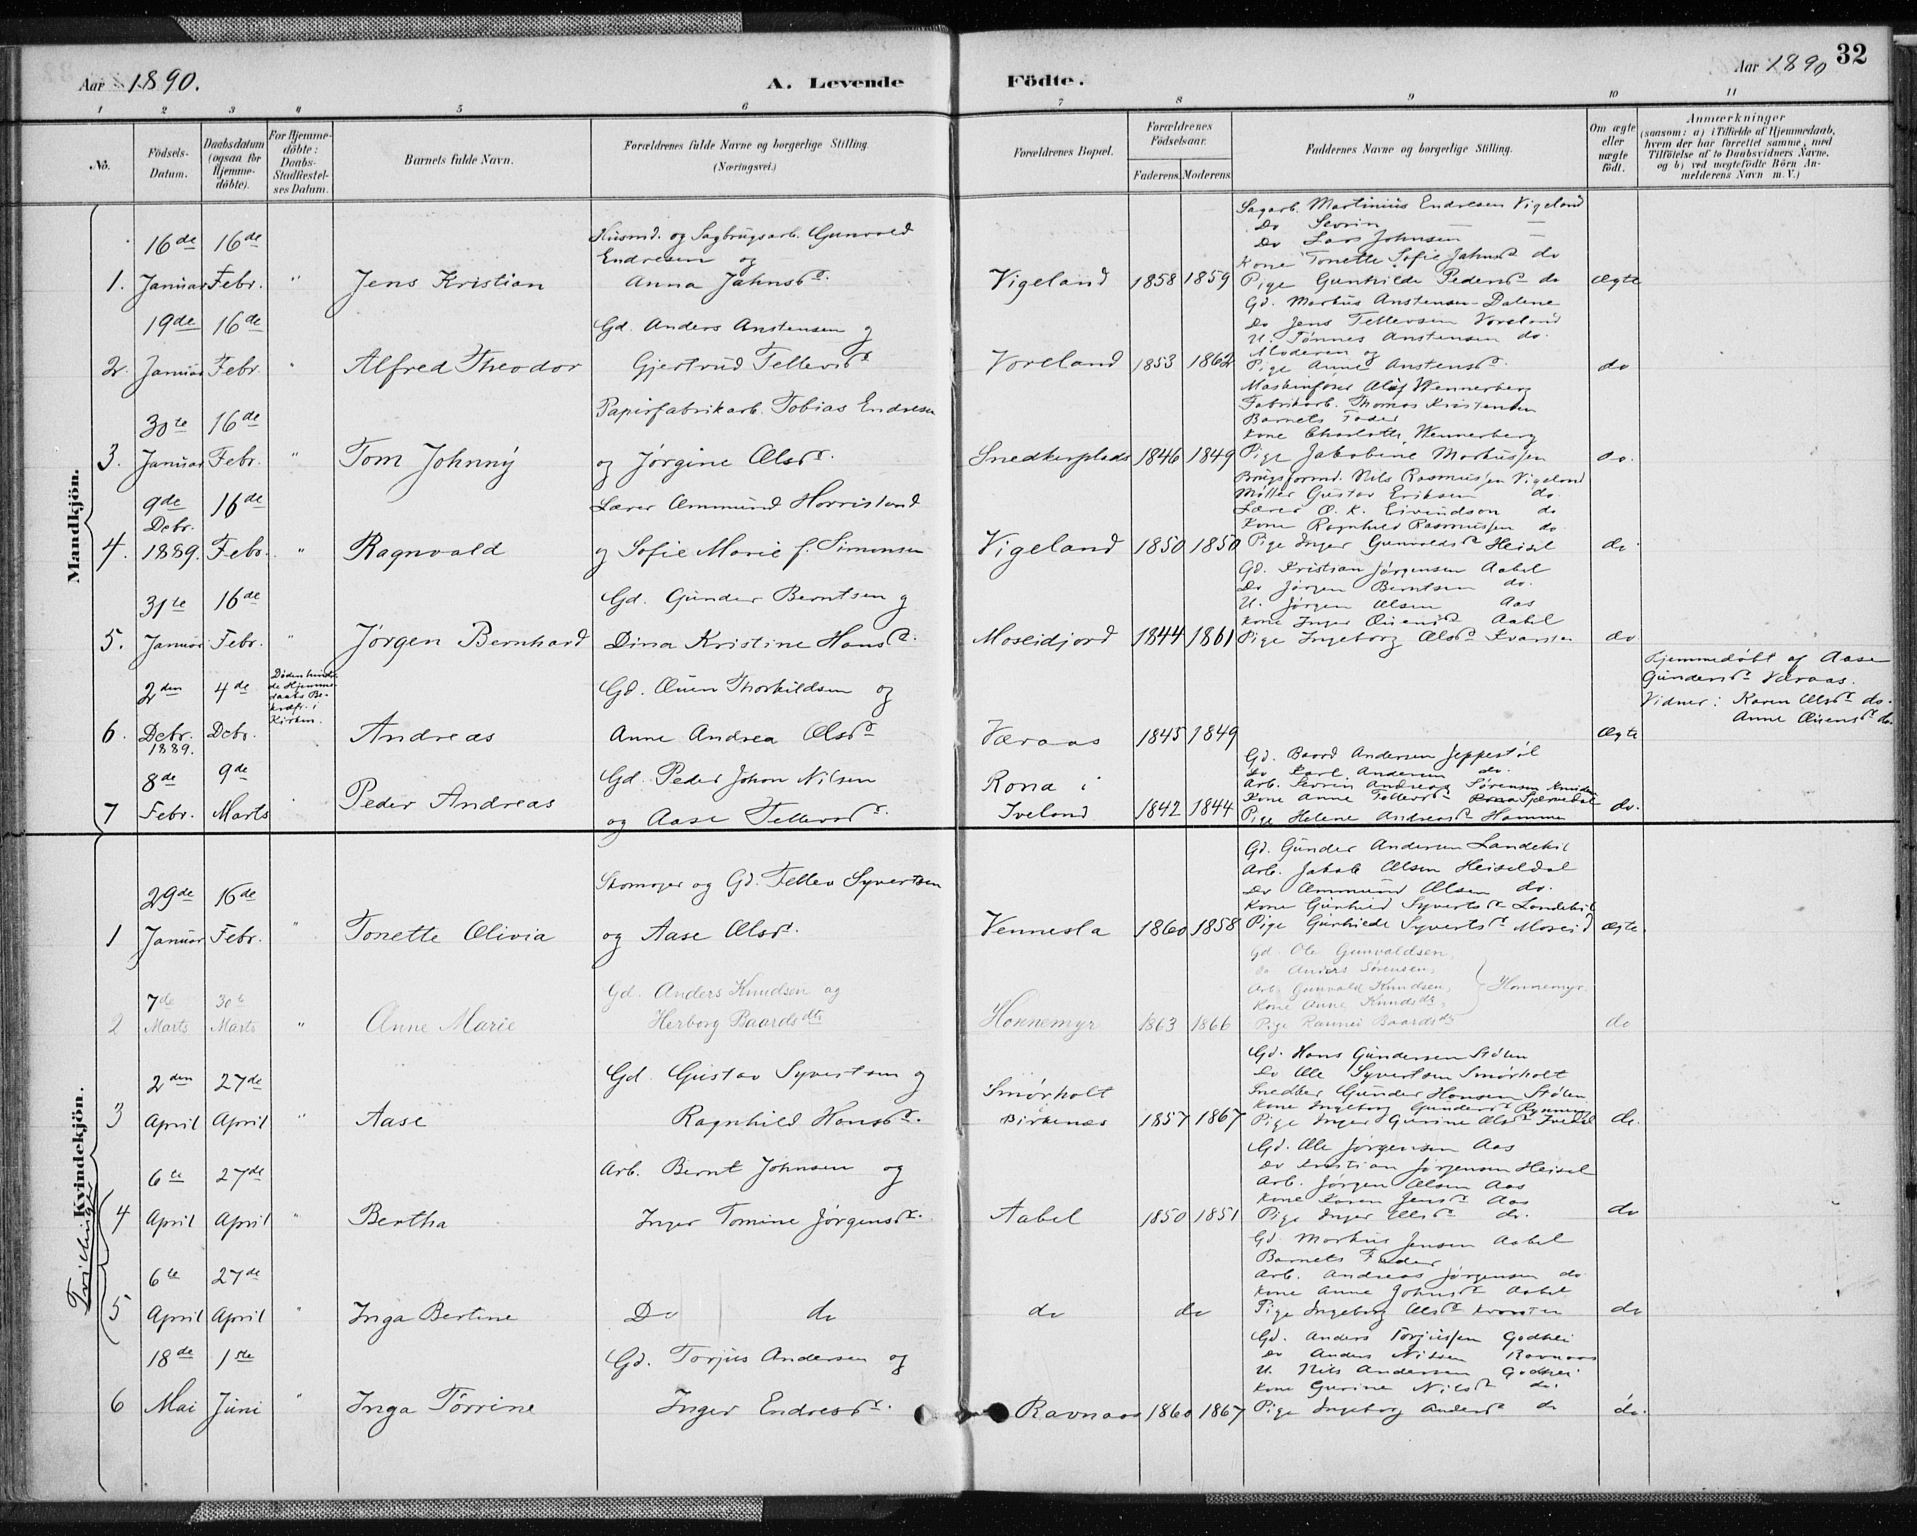 Aar 1890.
A. Levende
Födte.
Aar 1890
32
1 2 3 4 5 6 7 8 9 10 11
No.
Födsels-Datum.
Daabsdatum (ogsaa for Hjemmedöbte).
For Hjemmedöbte: Daabs-Stadfæstelses Datum.
Barnets fulde Navn.
Forældrenes fulde Navne og borgerlige Stilling. (Næringsvei.)
Forældrenes Bopæl.
Forældrenes Födselsaar.
Faderens. Moderens.
Faddernes Navne og borgerlige Stilling.
Om ægte eller uægte födt.
Anmærkninger
(saasom: a) i Tilfælde af Hjemmedaab, hvem der har forrettet samme, med Tilföielse af to Daabsvidners Navne, og b) ved uægtefödte Börn Anmelderens Navn m. V.)
Mandkjön.
Sagarb. Martinius Endresen Vigeland
Do Sevrin —
Do Lars Johnsen —
Kone Tonette Sofie Jahnsd do
16de 16de
Husmd. og Sagbrugsarb. Gunvald
Endresen og
1. Januar Febr. " Jens Kristian Anna Jahnsd. Vigeland 1858 1859 Pige Gunhilde Pedersd do Ægte
Gd. Markus Anstensen Dalene
Do Jens Tellevsen Voreland
U. Tønnes Anstensen do.
Moderen og
19de 16de
Gd. Anders Anstensen og
2. Januar Febr. " Alfred Theodor Gjertrud Tellevsd Voreland 1853 1862 Pige Anne Anstensd. do
Maskinfører Oluf Wennerberg
Fabrikarb. Thomas Kristensen
Barnets Fader
Kone Charlotte Wennerberg
30te 16de
Papirfabrikarb. Tobias Endresen
3. Januar Febr. " Tom Johnny og Jørgine Olsd. Snedkerplads 1846 1849 Pige Jakobine Markussen do.
Brugsformd. Nils Rasmussen Vigeland
Møller Gustav Eriksen do.
Lærer O. K. Eivindson do
Kone Ragnhild Rasmussen do.
9de 16de
Lærer Ommund Horrisland
4. Debr. 1889. Febr. " Ragnvald og Sofie Marie f. Simonsen Vigeland 1850 1850 Pige Inger Gunvaldsd Heisel do
Gd. Kristian Jørgensen Aabel
Do Jørgen Berntsen do.
U. Jørgen Olsen Aas
Kone Inger Ouensd Aabel
31te 16de
Gd. Gunder Berntsen og
5. Januar Febr. " Jørgen Bernhard Dina Kristine Hansd. Moseidjord 1844 1861 Pige Ingeborg Olsd Kvarsten do
Hjemmedøbt af Aase
Gundersd Væraas.
Vidner: Karen Olsd do.
Anne Ouensd do
Døden hindrede Hjemmedaabs Bekræft. i Kirken.
2den 4de
Gd. Ouen Thorkildsen og
6. Debr. 1889. Debr. Andreas Anne Andrea Olsd Væraas 1845 1849 Ægte
Gd. Baard Andersen Jeppestøl
Do Karl Andersen do.
Arb. Sevrin Andreas Sørensen
Kone Anne Tellevsd
8de 9de
Gd. Peder Johan Nilsen
7 Febr. Marts Peder Andreas og Aase Tellevsd. Rona i Iveland 1842 1844 Pige Helene Andreasd Hamme do.
Kvindekjön.
Gd. Gunder Andersen Landekil
Arb. Jakob Olsen Heiseldal
Do Ommund Olsen do.
Kone Gunhild Syvertsd Landekil
29de 16de
Skomager og Gd. Tellev Syvertsen
1 Januar Febr. " Tonette Olivia og Aase Olsd. Vennesla 1860 1858 Pige Gunhilde Syvertsd Moseid Ægte.
Gd. Ole Gunvaldsen,
Do Anders Sørensen,
Arb. Gunvald Knudsen,
Kone Anne Knudsdt, Honnemyr.
7de 30te
Gd. Anders Knudsen og
2 Marts Marts " Anne Marie Herborg Baardsdtr Honnemyr 1863 1866 Pige Rannei Baardsdt do
Gd. Hans Gundersen Stølen
Do Ole Syvertsen Smørholt
Snedker Gunder Hansen Stølen
Kone Ingeborg Gundersd
2den 27de
Gd. Gustav Syvertsen og
3 April April " Aase Ragnhild Hansd. Smørholt Birkenæs 1857 1867 Pige Inger Gurine Olsd do.
Gd. Ole Jørgensen Aas
Do Kristian Jørgensen Heisel
Arb. Jørgen Olsen Aas
Kone Karen Jensd Aas
6te 27de
Arb. Bernt Johnsen og
Tvillinger
4 April April " Bertha Inger Tomine Jørgensd. Aabel 1850 1851 Pige Inger Olsd do. do
Gd. Markus Jensen Aabel
Barnets Fader
Arb. Andreas Jørgensen do
Kone Anne Johnsd Aabel
6te 27de
5 April April " Inga Bertine Do do do do Pige Ingeborg Olsd Kvarsten do
Gd. Anders Torjussen Godhei
Do Anders Nilsen Ravnaas
U. Nils Andersen Godhei
Kone Gurine Nilsd do.
18de 1ste
Gd. Torjus Andersen og
6 Mai Juni " Inga Tørrine Inger Endresd. Ravnaas 1860 1867 Pige Ingeborg Andersd do do.